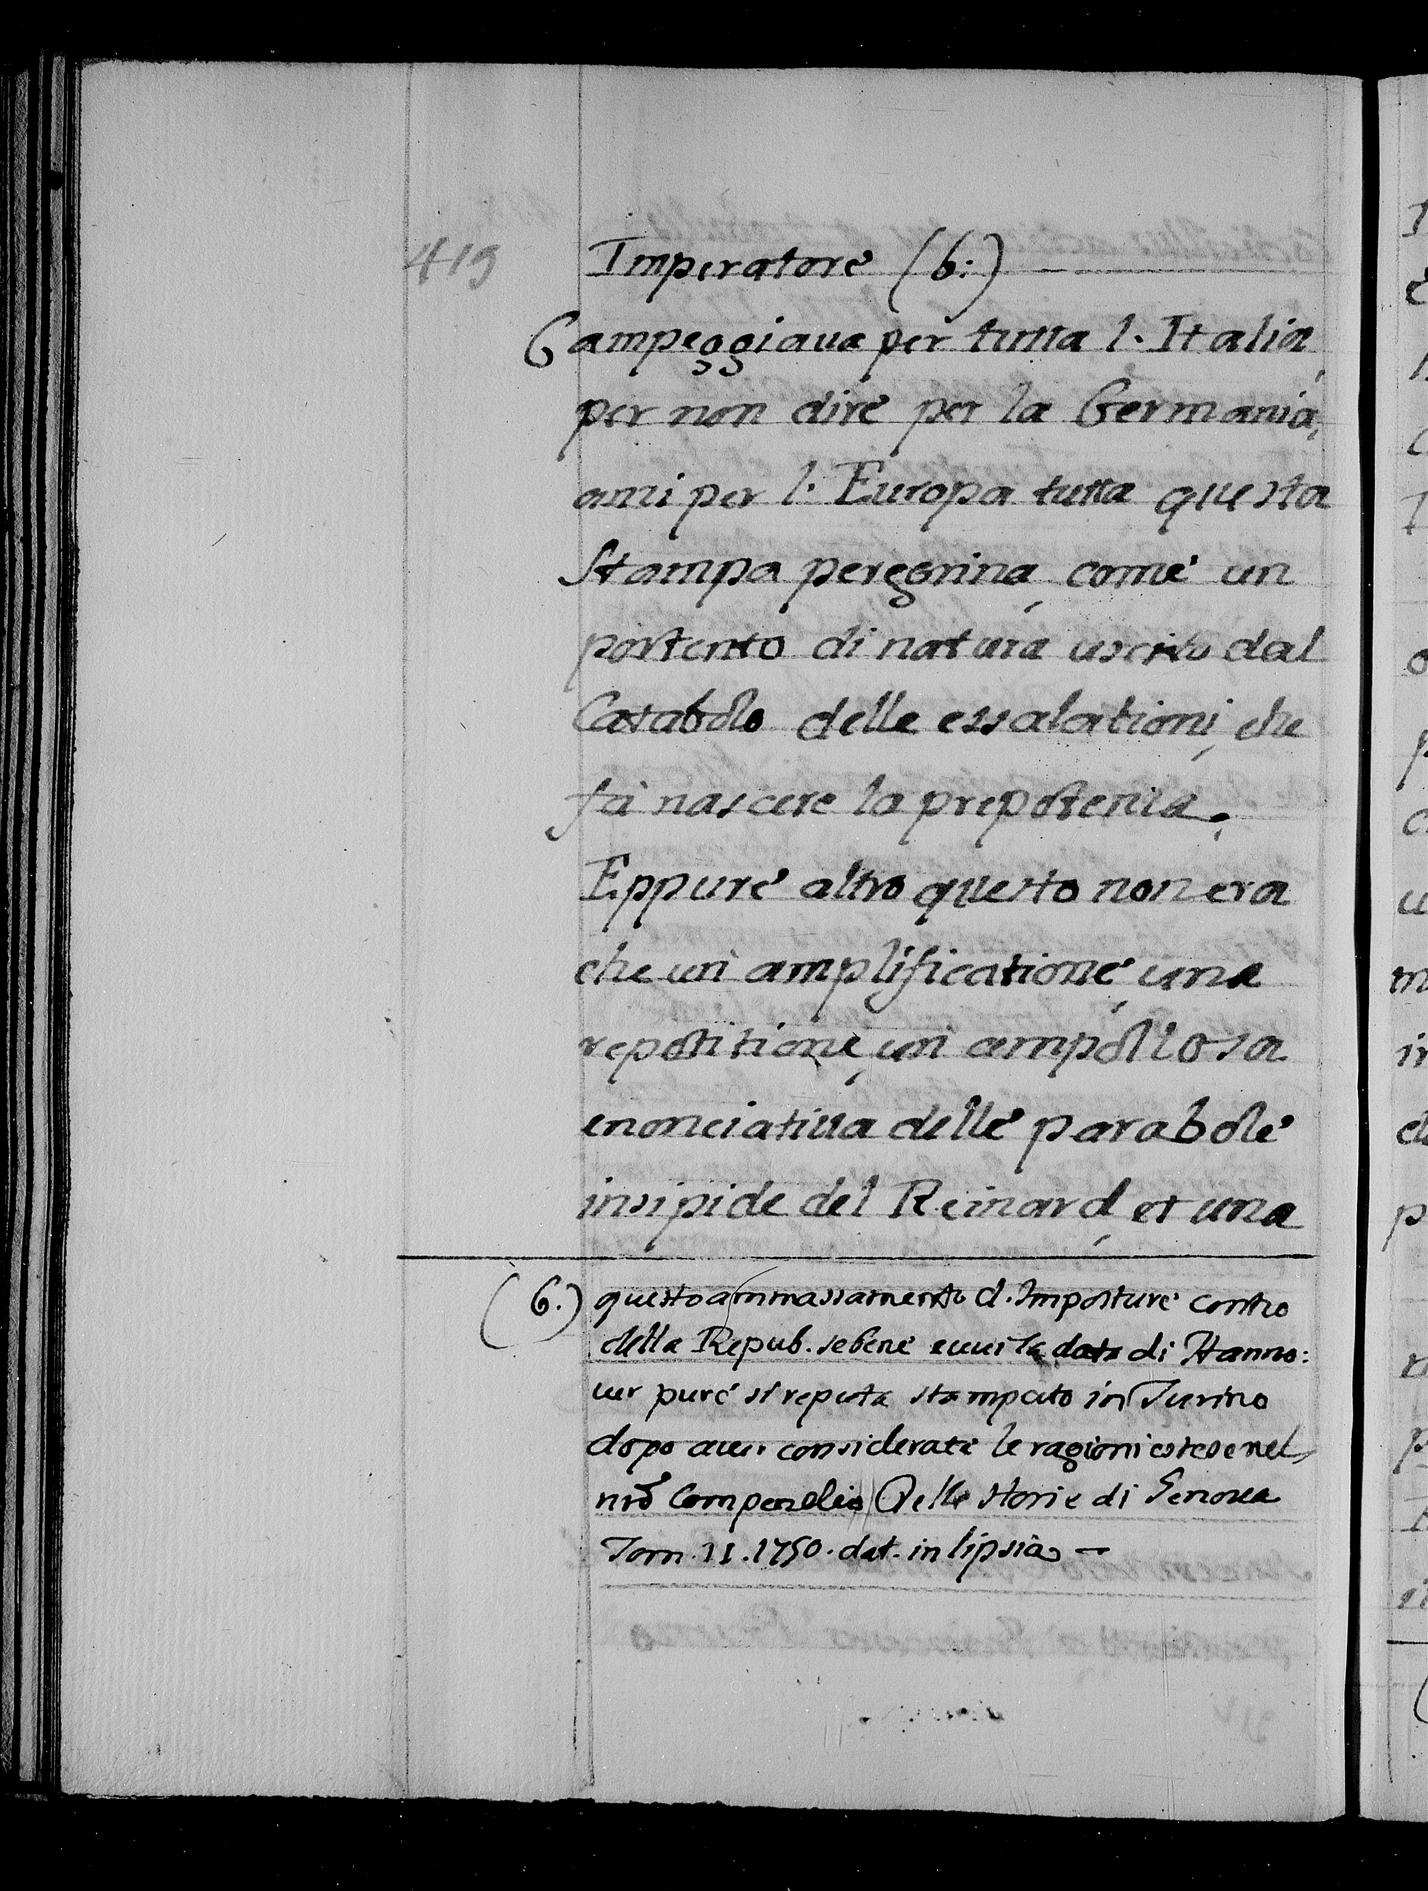 419
Imperatore (b:)
Campeggiaua per tutta l. Italia,
per non dire per la Germania,
anzi per l. Europa tutta questa
Stampa peregrina, come un
portento di natura uscito dal
Catabolo delle essalationi, che
fà nascere la prepotenza.
Eppure altro questo non era
che un amplificatione, una
repetitione, un ampollosa
enonciatiua delle parabole
insipide del Reinard, et una
(6.) questo ammassamento d. Imposture contro
della Repub. sebene euui la data di Hanno:
uer pure si reputa stampato in Turino
dopo auer considerate le ragioni estese nel
nrõ Compendio Delle storie di Genoua
Tom. II. 1750. dat. in lipsia